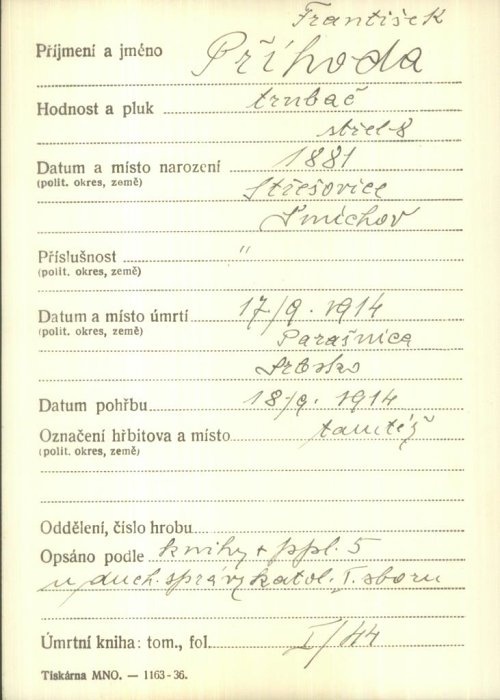 František
Příjmení a jméno Příhoda
Hodnost a pluk trubač
střel. 8
Datum a místo narození 1881
(polit. okres, země) Střešovice
Smíchov
Příslušnost "
(polit. okres, země)
Datum a místo úmrtí 17/9. 1914
(polit. okres, země) Parašnica
Srbsko
Datum pohřbu 18/9. 1914
Označení hřbitova a místo tamtéž
(polit. okres, země)
Oddělení, číslo hrobu
Opsáno podle knihy + ppl. 5
u duch. správy katol. I. sboru
Úmrtní kniha: tom., fol. I/44
Tiskárna MNO. — 1163-36.